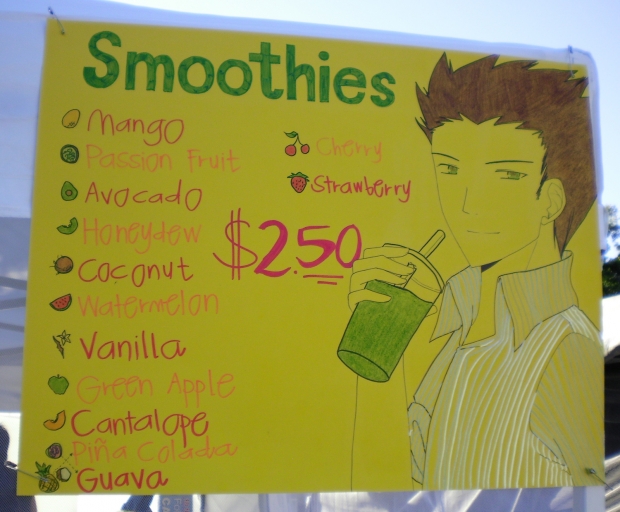 Smoothies
Mango
Passion Fruit
Avocado
Honeydew
Coconut
Watermelon
Vanilla
Green Apple
Cantalope
Piña Colada
Guava
Cherry
Strawberry
$2.50